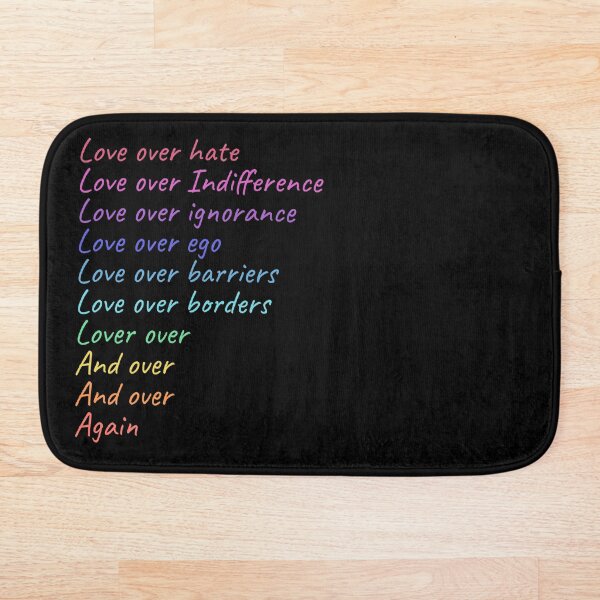 Love over hate
Love over Indifference
Love over ignorance
Love over ego
Love over barriers
Love over borders
Lover over
And over
And over
Again